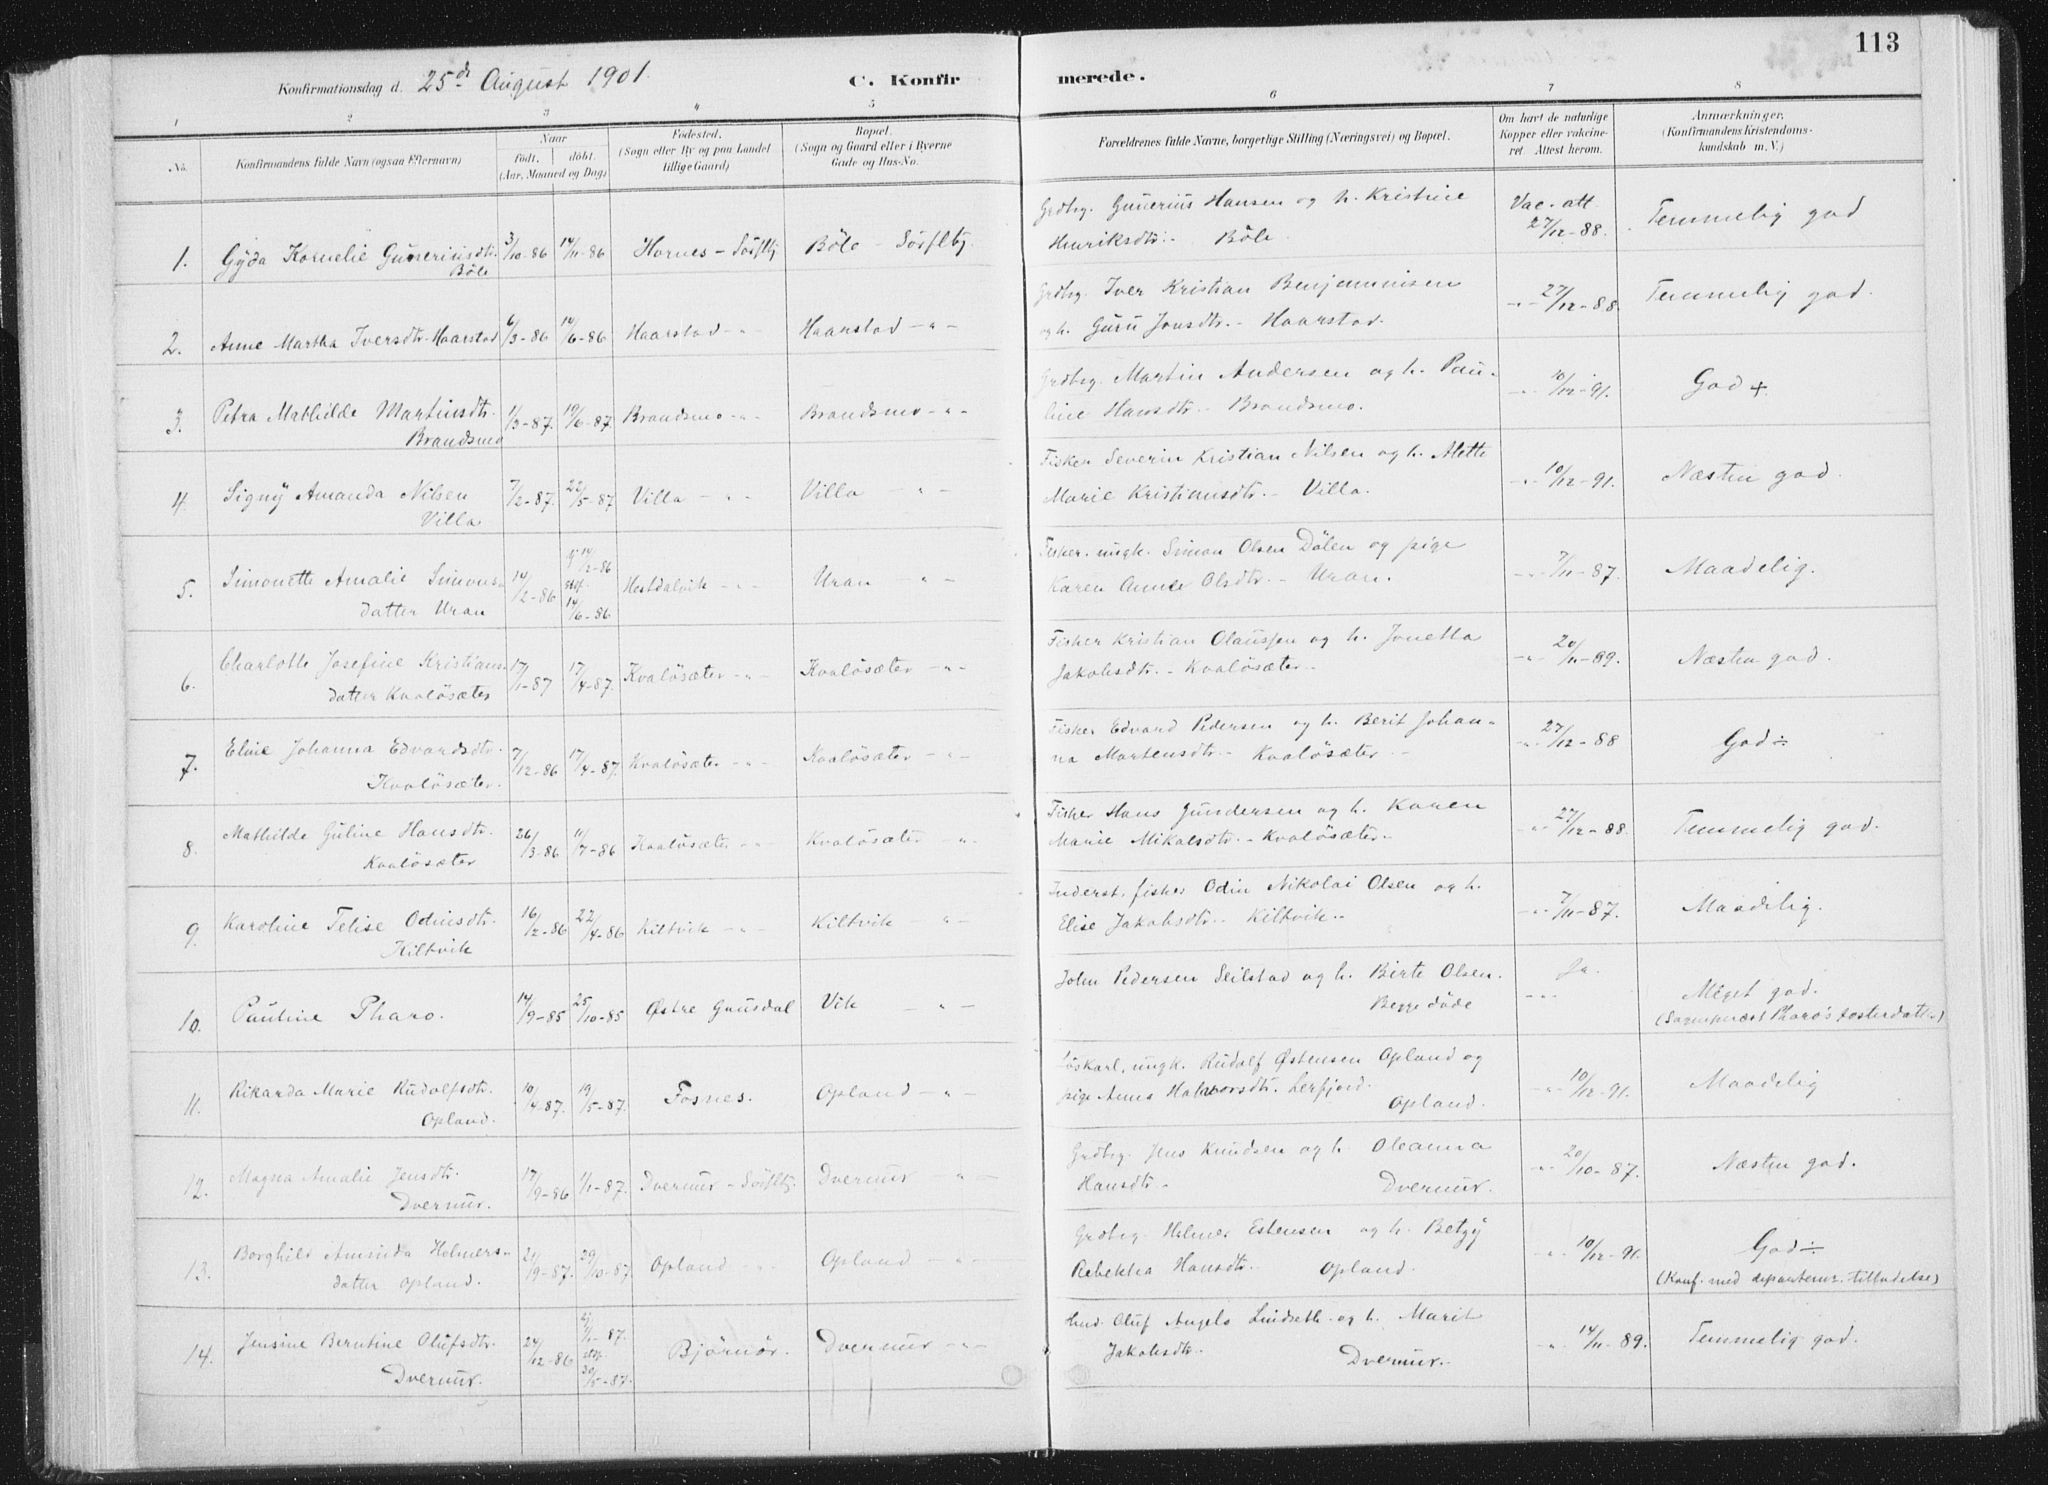 113
Konfirmationsdag d. 25de August 1901.
C. Konfirmerede.
1 2 3 4 5 6 7 8
No. Konfirmandens fulde Navn (ogsaa Efternavn) Naar født. døbt. (Aar, Maaned og Dag) Fødested. (Sogn eller By og paa Landet tillige Gaard) Bopæl. (Sogn og Gaard eller i Byerne Gade og Hus-No. Forældrenes fulde Navne, borgerlige Stilling (Næringsvei) og Bopæl. Om havt de naturlige Kopper eller vakcineret. Attest herom. Anmærkninger. (Konfirmandens Kristendomskundskab m. V.)
1. Gÿda Kornelie Gunneriusdtr. Böle 3/10-86 14/11-86 Hornes - Sörfltg. Böle - Sörfltg. Grdbrg. Gunerius Hansen og h. Kristine
Henriksdtr. - Böle. Vac. att. 27/12-88. Temmelig god
2. Anne Martha Iversdtr. Haarstad 6/3-86 14/6-86 Haarstad -"- Haarstad -"- Grdbrg. Iver Kristian Benjaminsen
og h. Guru Jonsdtr. - Haarstad. -"- 27/12-88. Temmelig god.
3. Petra Mathilde Martinsdtr. Brandsmo 1/3-87. 19/6-87. Brandsmo -"- Brandsmo -"- Grdbrg. Martin Andersen og h. Pau-
line Hansdtr. - Brandsmo. -"- 10/12-91. God +.
4. Signÿ Amanda Nilsen Villa 7/2-87. 22/5-87 Villa -"- Villa -"- Fisker Severin Kristian Nilsen og h. Alette
Marie Kristiansdtr. - Villa. -"- 10/12-91. Næsten god.
5. Simonette Amalie Simons-
datter Uran 14/2-86 14/2-86 stsf. 14/6-86 Hestdalvik -"- Uran -"- Fisker. ungk. Simon Olsen Dölen og pige
Karen Anna Olsdtr. - Uran. -"- 7/11-87. Maadelig.
6. Charlotte Josefine Kristians-
datter Kvalösæter 17/1-87 17/4-87. Kvalösæter -"- Kvalösæter -"- Fisker Kristian Olaussen og h. Jonetta
Jakobsdtr. - Kvalösæter. -"- 20/11-89. Næsten god.
7. Eline Johanna Edvardsdtr.
Kvalösæter. 7/12-86 17/4-87. Kvalösæter -"- Kvalösæter -"- Fisker Edvard Pedersen og h. Berit Johan-
na Martensdtr. - Kvalösæter - -"- 27/12-88 God ÷
8. Mathilde Guline Hansdtr.
Kvalösæter 26/3-86 11/7-86 Kvalösæter -"- Kvalösæter -"- Fisker Hans Gundersen og h. Karen
Marie Mikalsdtr. - Kvalösæter. -"- 27/12-88. Temmelig god.
9. Karoline Telise Odinsdtr.
Kiltvik 16/2-86 22/4-86 Kiltvik -"- Kiltvik " - Inderst, fisker Odin Nikolai Olsen og h.
Elise Jakobsdtr. - Kiltvik. -"- 7/11-87. Maadelig.
10. Pauline Pharo. 14/9-85 25/10-85 Østre Gausdal Vik " - John Pedersen Seilstad og h. Birte Olsen.
Begge døde Ja. -"- Meget god.
(Sogneprest Pharo's fosterdatter)
11. Rikarda Marie Rudolfsdtr.
Opland. 10/4-87. 19/5-87. Fosnes. Opland -"- Löskarl, ungk. Rudolf Østensen Opland og
pige Anna Halvorsdtr. Lerfjord.
Opland. -"- 10/12-91. Maadelig
12. Magna Amalie Jensdtr.
Dvernur. 17/9-86 1/1-87. Dvernur - Sörfltg. Dvernur " - Grdbrg. Jens Knudsen og h. Oleanna
Hansdtr. - Dvernur. -"- 20/10-87. Næsten god.
13. Borghild Aminda Helmers-
datter Opland. 21/9-87. 29/10-87. Opland -"- Opland -"- Grdbrg. Helmer Estensen og h. Betzÿ
Rebekka Hansdtr. Opland. -"- 10/12-91. God ÷
(Konf. med departem. tilladelse)
14. Jensine Berntine Olufsdtr.
Dvernur. 24/12-86 1/1-87. stsf. 30/5-87. Björnör. Dvernur -"- Hmd. Oluf Angels Lindseth og h. Marit
Jakobsdtr. Dvernur. - -"- 14/11-89. Temmelig god.